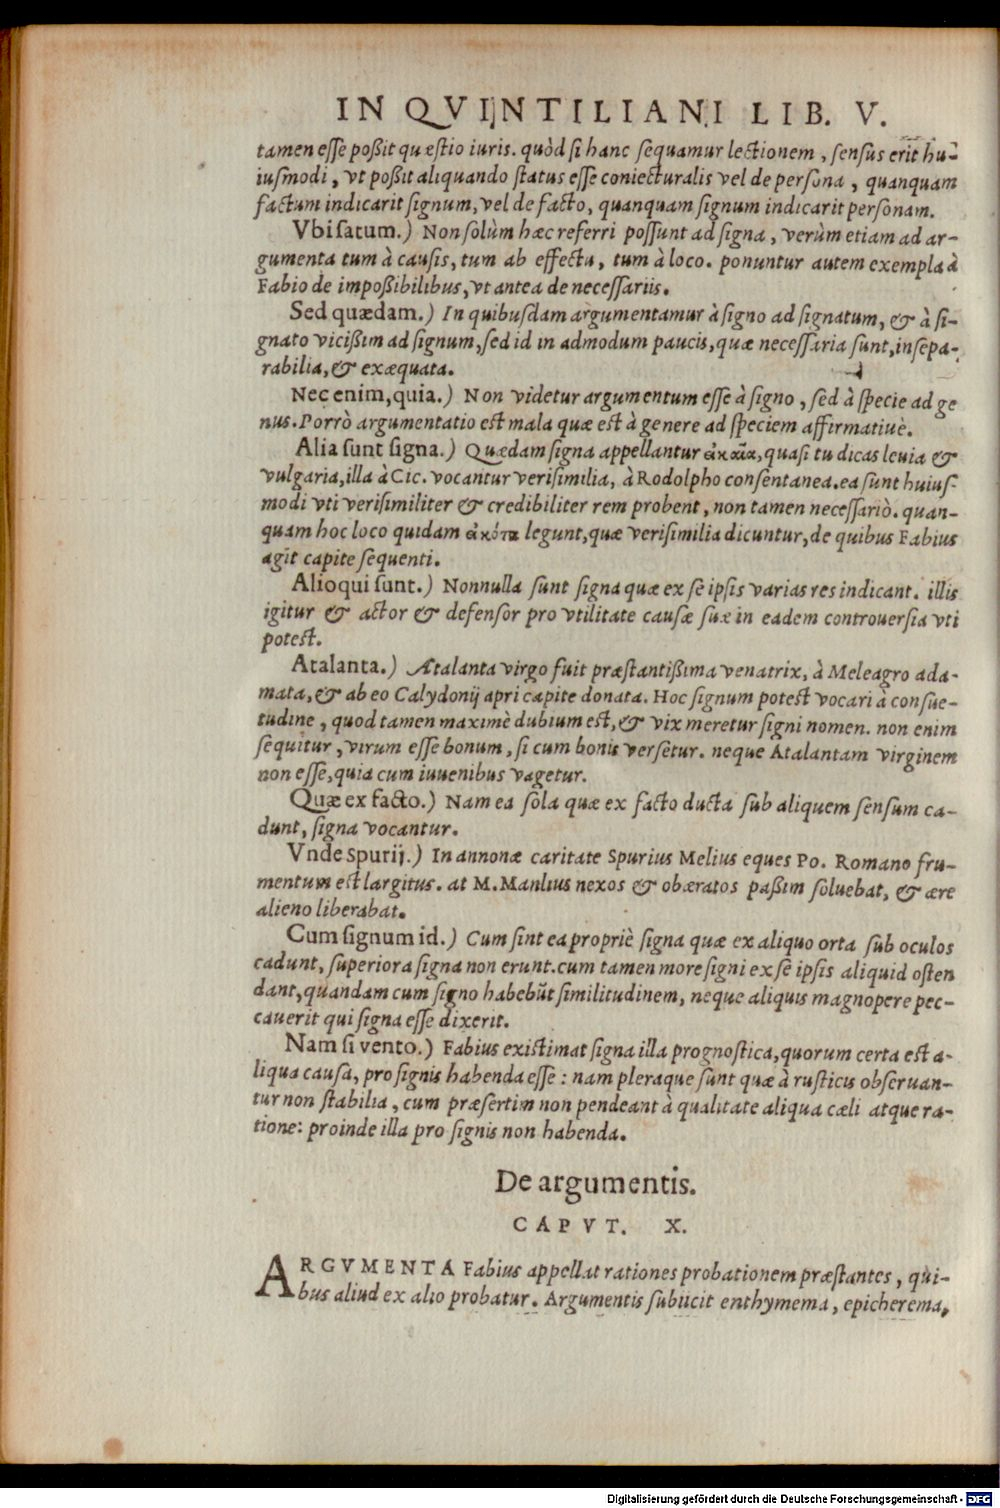 IN QVINTILIANI LIB. V.
tamen esse poßit quæstio iuris. quòd si hanc sequamur lectionem, sensus erit hu-
iusmodi, vt poßit aliquando status esse coniecturalis vel de persona, quanquam
factum indicarit signum, vel de facto, quanquam signum indicarit personam.
Vbi satum.) Non solùm hæc referri possunt ad signa, verùm etiam ad ar-
gumenta tum à causis, tum ab effectu, tum à loco. ponuntur autem exempla à
Fabio de impoßibilibus, vt antea de necessariis.
Sed quædam.) In quibusdam argumentamur à signo ad signatum, & à si-
gnato vicißim ad signum, sed id in admodum paucis, quæ necessaria sunt, insepa-
rabilia, & exæquata.
Nec enim, quia.) Non videtur argumentum esse à signo, sed à specie ad ge
nus. Porrò argumentatio est mala quæ est à genere ad speciem affirmatiuè.
Alia sunt signa.) Quædam signa appellantur quasi tu dicas leuia &
vulgaria, illa à Cic. vocantur verisimilia, à Rodolpho consentanea. ea sunt huius-
modi vti verisimiliter & credibiliter rem probent, non tamen necessariò. quan-
quam hoc loco quidam εἰκότα legunt, quæ verisimilia dicuntur, de quibus Fabius
agit capite sequenti.
Alioqui sunt.) Nonnulla sunt signa quæ ex se ipsis varias res indicant. illis
igitur & actor & defensor pro vtilitate causæ suæ in eadem controuersia vti
potest.
Atalanta.) Atalanta virgo fuit præstantißima venatrix, à Meleagro ada-
mata, & ab eo Calydonij apri capite donata. Hoc signum potest vocari à consue-
tudine, quod tamen maximè dubium est, & vix meretur signi nomen. non enim
sequitur, virum esse bonum, si cum bonis versetur. neque Atalantam virginem
non esse, quia cum iuuenibus vagetur.
Quæ ex facto.) Nam ea sola quæ ex facto ducta sub aliquem sensum ca-
dunt, signa vocantur.
Vnde Spurij.) In annonæ caritate Spurius Melius eques Po. Romano fru-
mentum est largitus. at M. Manlius nexos & obæratos paßim soluebat, & ære
alieno liberabat.
Cum signum id.) Cum sint ea propriè signa quæ ex aliquo orta sub oculos
cadunt, superiora signa non erunt. cum tamen more signi ex se ipsis aliquid osten
dant, quandam cum signo habebūt similitudinem, neque aliquis magnopere pec-
cauerit qui signa esse dixerit.
Nam si vento.) Fabius existimat signa illa prognostica, quorum certa est a-
liqua causa, pro signis habenda esse: nam pleraque sunt quæ à rusticis obseruan-
tur non stabilia, cum præsertim non pendeant à qualitate aliqua cæli atque ra-
tione: proinde illa pro signis non habenda.
De argumentis.
CAPVT. X.
ARGVMENTA Fabius appellat rationes probationem præstantes, qui-
bus aliud ex alio probatur. Argumentis subiicit enthymema, epicherema,
Digitalisierung gefördert durch die Deutsche Forschungsgemeinschaft - DFG